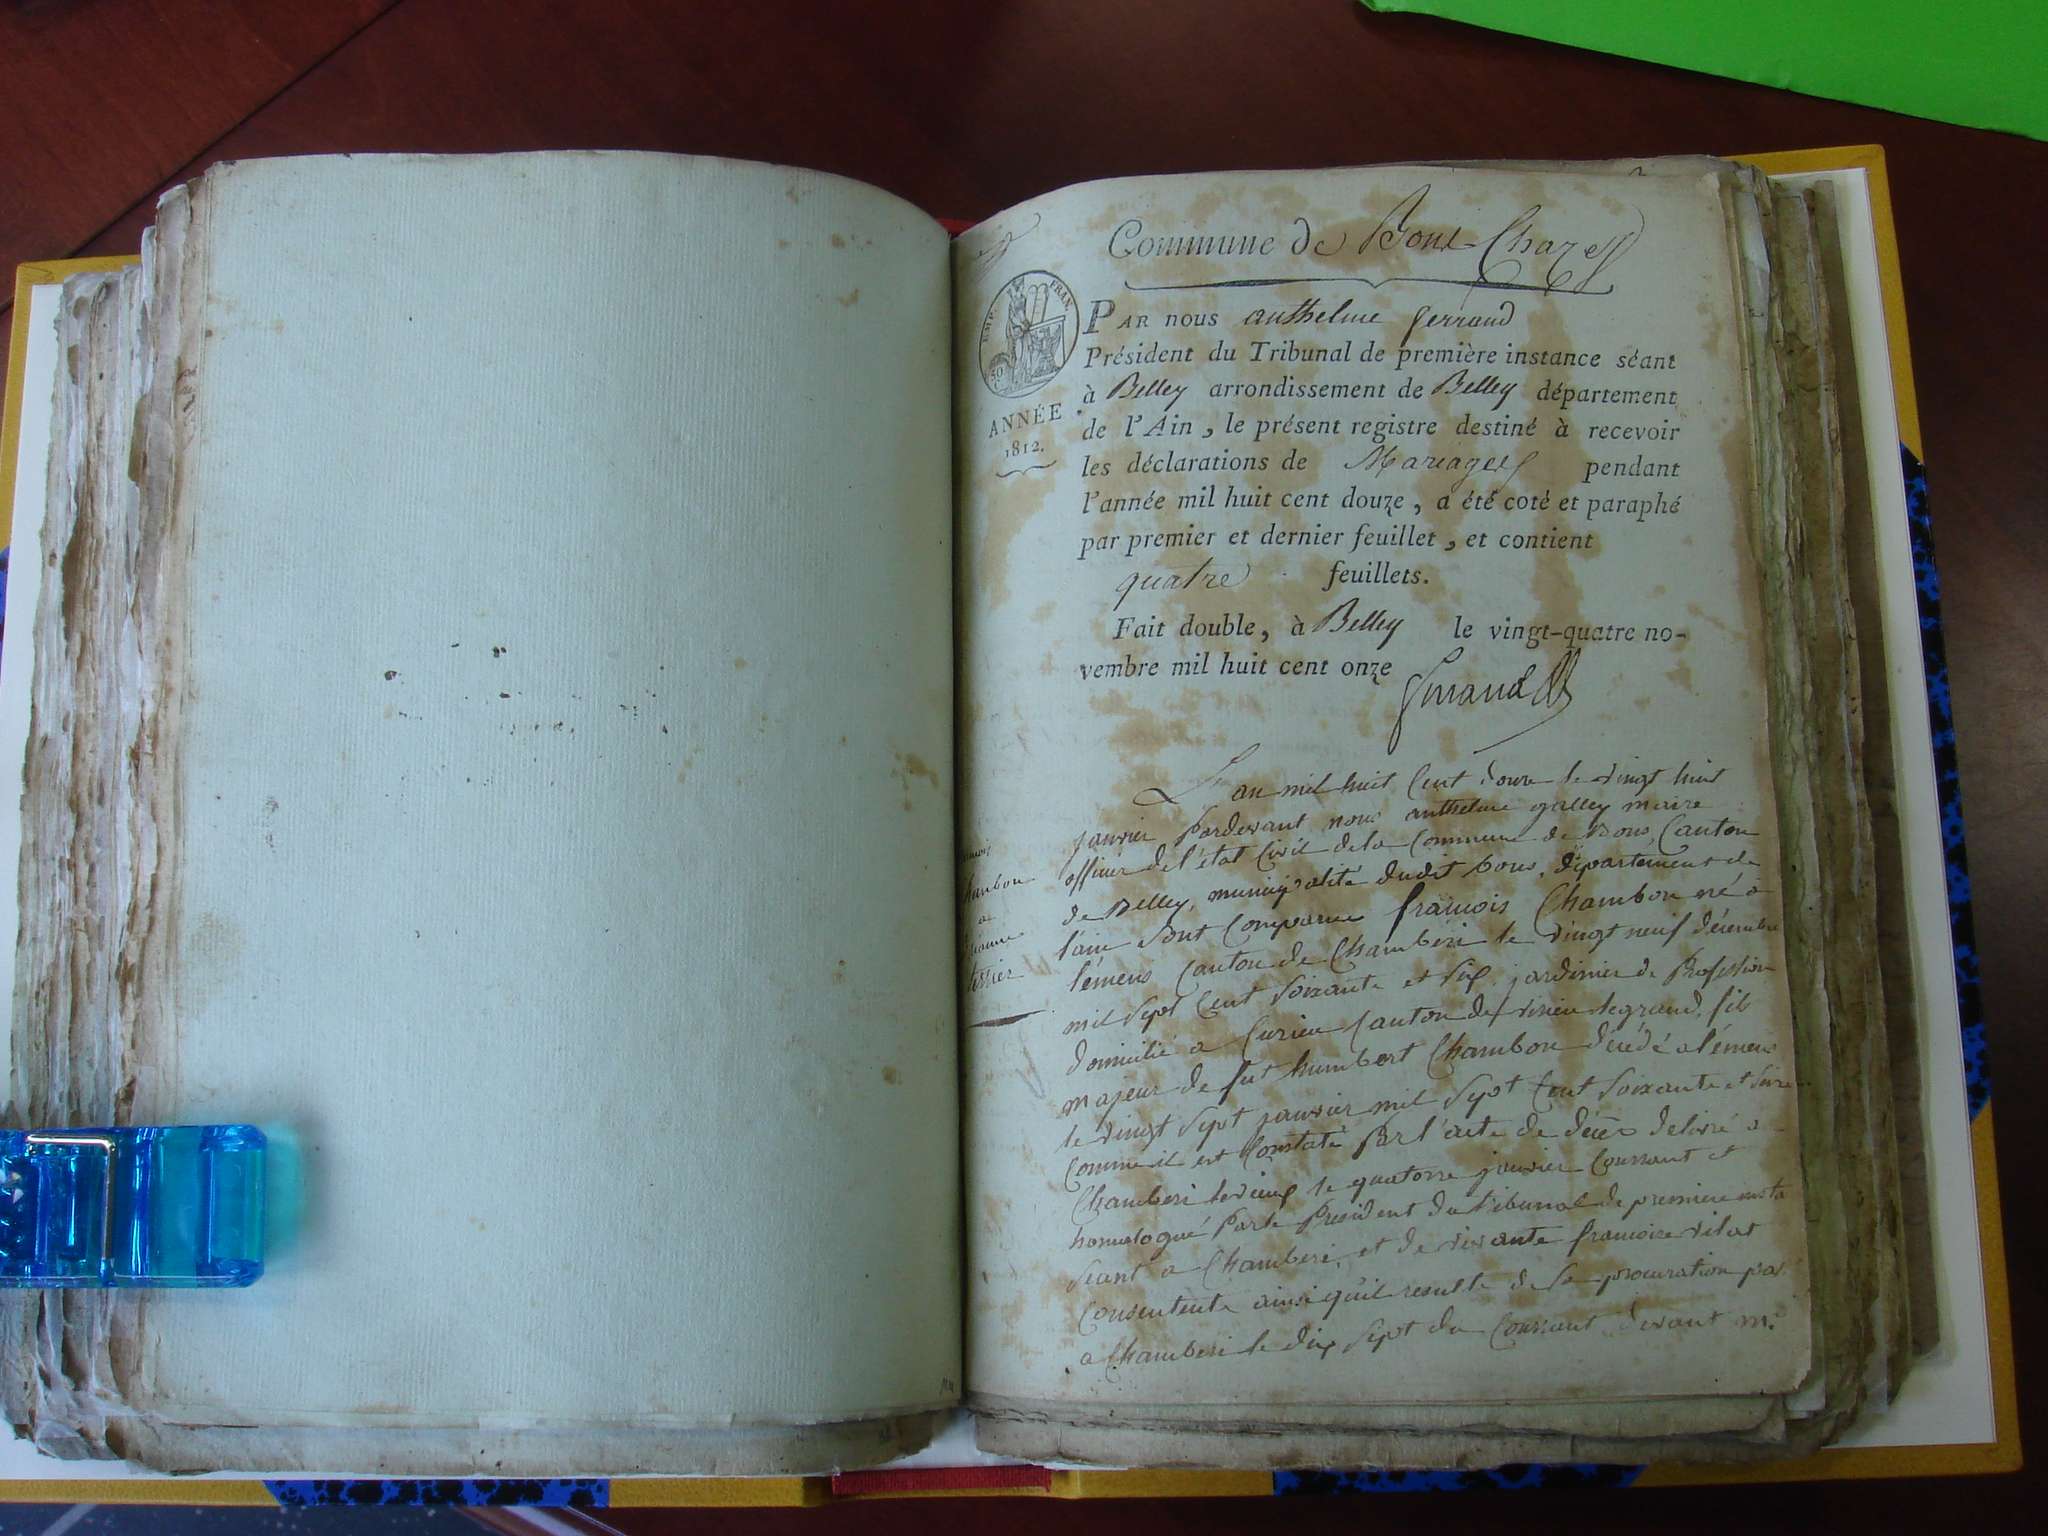 Commune de Bons Chazey
EMP. FRAN.
50
C
ANNÉE
1812.
PAR nous anthelme ferrand
Président du Tribunal de première instance séant
à Belley arrondissement de Belley département
de l'Ain, le présent registre destiné à recevoir
les déclarations de Mariages pendant
l'année mil huit cent douze, a été coté et paraphé
par premier et dernier feuillet, et contient
quatre feuillets.
Fait double, à Belley le vingt-quatre no-
vembre mil huit cent onze
L'an mil huit Cent douze le vingt huit
janvier Pardevant nous anthelme galley maire
officier de l'état Civil de la Commune de Bons, Canton
de Belley, municipalité dudit bons, département de
l'ain Sont Comparus francois Chambon né à
lémens Canton de Chamberi le vingt neuf décembre
mil Sept Cent Soixante et Six, jardinier de Profession
domicilié a Curieu Canton de virieu legrand, fils
majeur de feu humbert Chambon décédé a lémens
le vingt Sept janvier mil Sept Cent Soixante et
Comme il est Constaté Par l'acte de décès delivré a
Chamberi levieux le quatorze janvier Courrant et
homologué Parle President du tribunal de premiere insta
Seant a Chamberi, et de vivante francoise vilat
Consentente ainsi qu'il resulte de Sa procuration pas
a Chamberi le dix Sept du Courrant devant m.e
hambon
a